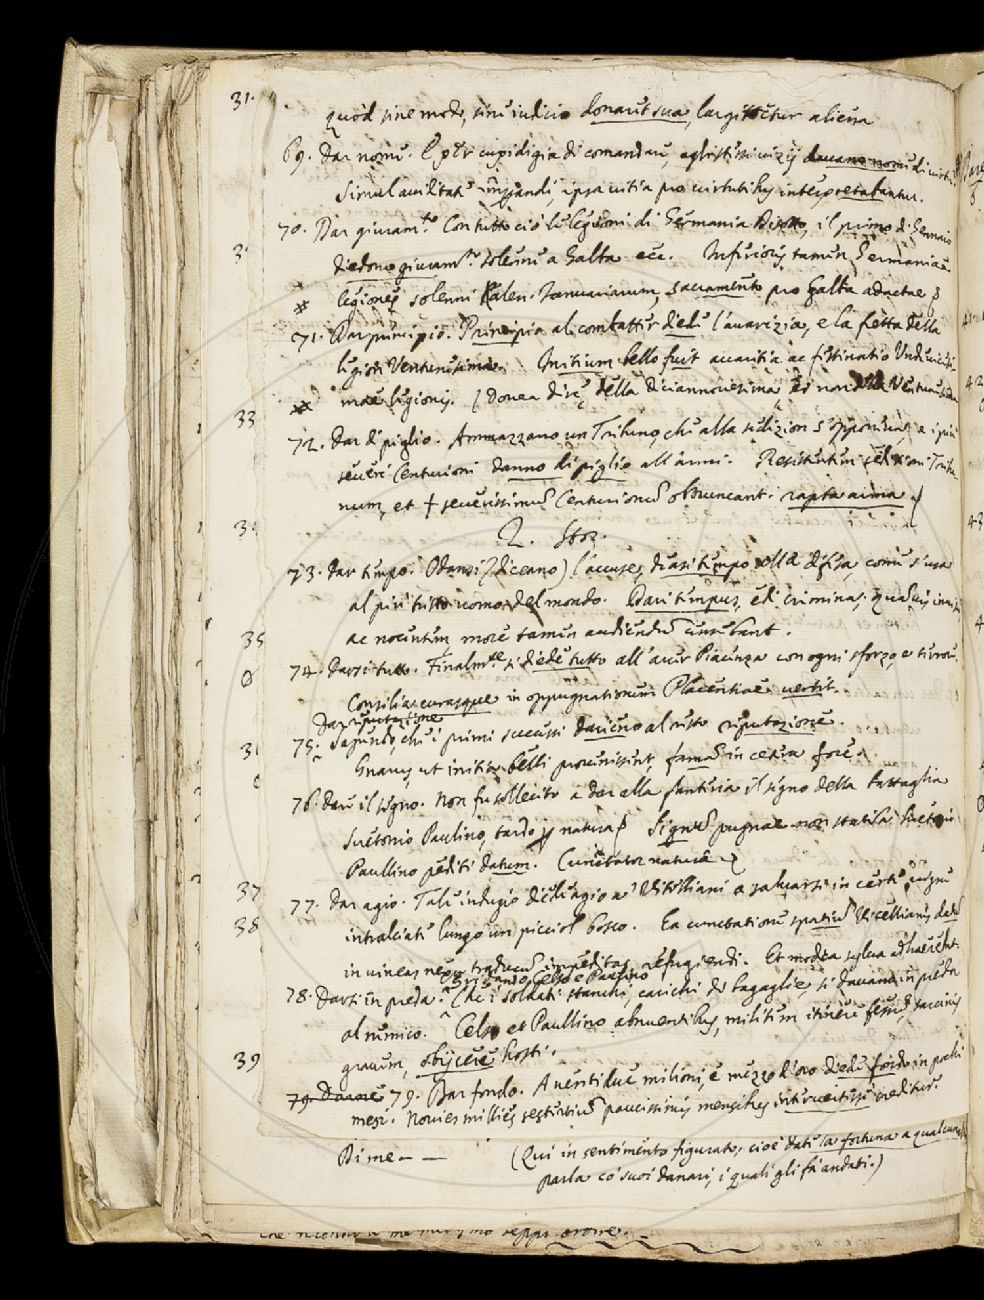 31.
quòd sine modo, sine iudicio donaret sua, largiretur aliena
69. Dar nome. E per cupidigia di comandare, agl'istessi vizij davano nome di virtù
simul aviditate imperandi, ipsa vitia pro virtutibus interpretabantur.
70. Dar giuram.to Con tutto ciò le legioni di Germania di sotto, il primo di Gennaio
diedono giuram.to solenne a Galba ecc. Inferioris tamen Germaniae
legiones solenni Kalen. Januariarum, sacramento pro Galba adactae
71. Dar principio. Principia al combatter diede l'avarizia, e la fretta della
legion Ventunesima. Initium bello fuit avaritia ac festinatio Undevicesi-
mae legionis. (Dovea dire della diciannovesima, et non della Ventunesima
33
72. Dar di piglio. Ammazzano un Tribuno, che alla sedizion s'opponeva, e i più
severi Centurioni danno di piglio all'armi. Resistentem seditioni Tribu-
num, et severissimos Centurionum obtruncant. rapta arma
34
2. Stor.
73. Dar tempo. Odansi (diceano) l'accuse, diasi tempo alla difesa, come s'usa
al più tristo uomo del mondo. Dari tempus, edi crimina, quamvis invis
35
ac nocentem more tamen audiendum censebant.
74. Darsi tutto. Finalm.te si diede tutto all'aver Piacenza con ogni sforzo, e terrore.
Consilia curasque in oppugnationem Placentiae vertit.
Dar riputazione
75. Sapendo, che i primi successi davieno al resto riputazione.
Gnarus, ut initia belli provenissent, famam in cetera fore.
76. Dare il segno. Non fu sollecito a dar alla fanteria il segno della battaglia
Suetonio Paulino, tardo per natura. Signum pugnae non statim Suetonio
Paullino pediti datum. Cunctator natura
37
77. Dar agio. Tale indugio diede agio a' Vitelliani a salvarsi in certe vigne
38
intralciate lungo un picciol bosco. Ea cunctatione spatium Vitellianis datum
in vineas nexu traducum impeditas refugiendi. Et modica sylva adhaerebat.
78. Darsi in preda. Gridando Celso e Paulino Che i soldati stanchi, carichi di bagaglie, si davano in preda
al nemico. Celso et Paullino abnuentibus, militem itinere fessum, sarcinis
gravem, obijcere hosti.
39
79. Darne 79. Dar fondo. A ventidue milioni, e mezzo d'oro diede fondo in pochi
mesi. Novies millies sestertium paucissimis mensibus intervertisse creditur
Dime - - (Qui in sentimento figurato, cioè date la fortuna a qualcuno
parla co' suoi danari, i quali gli fa andati.)